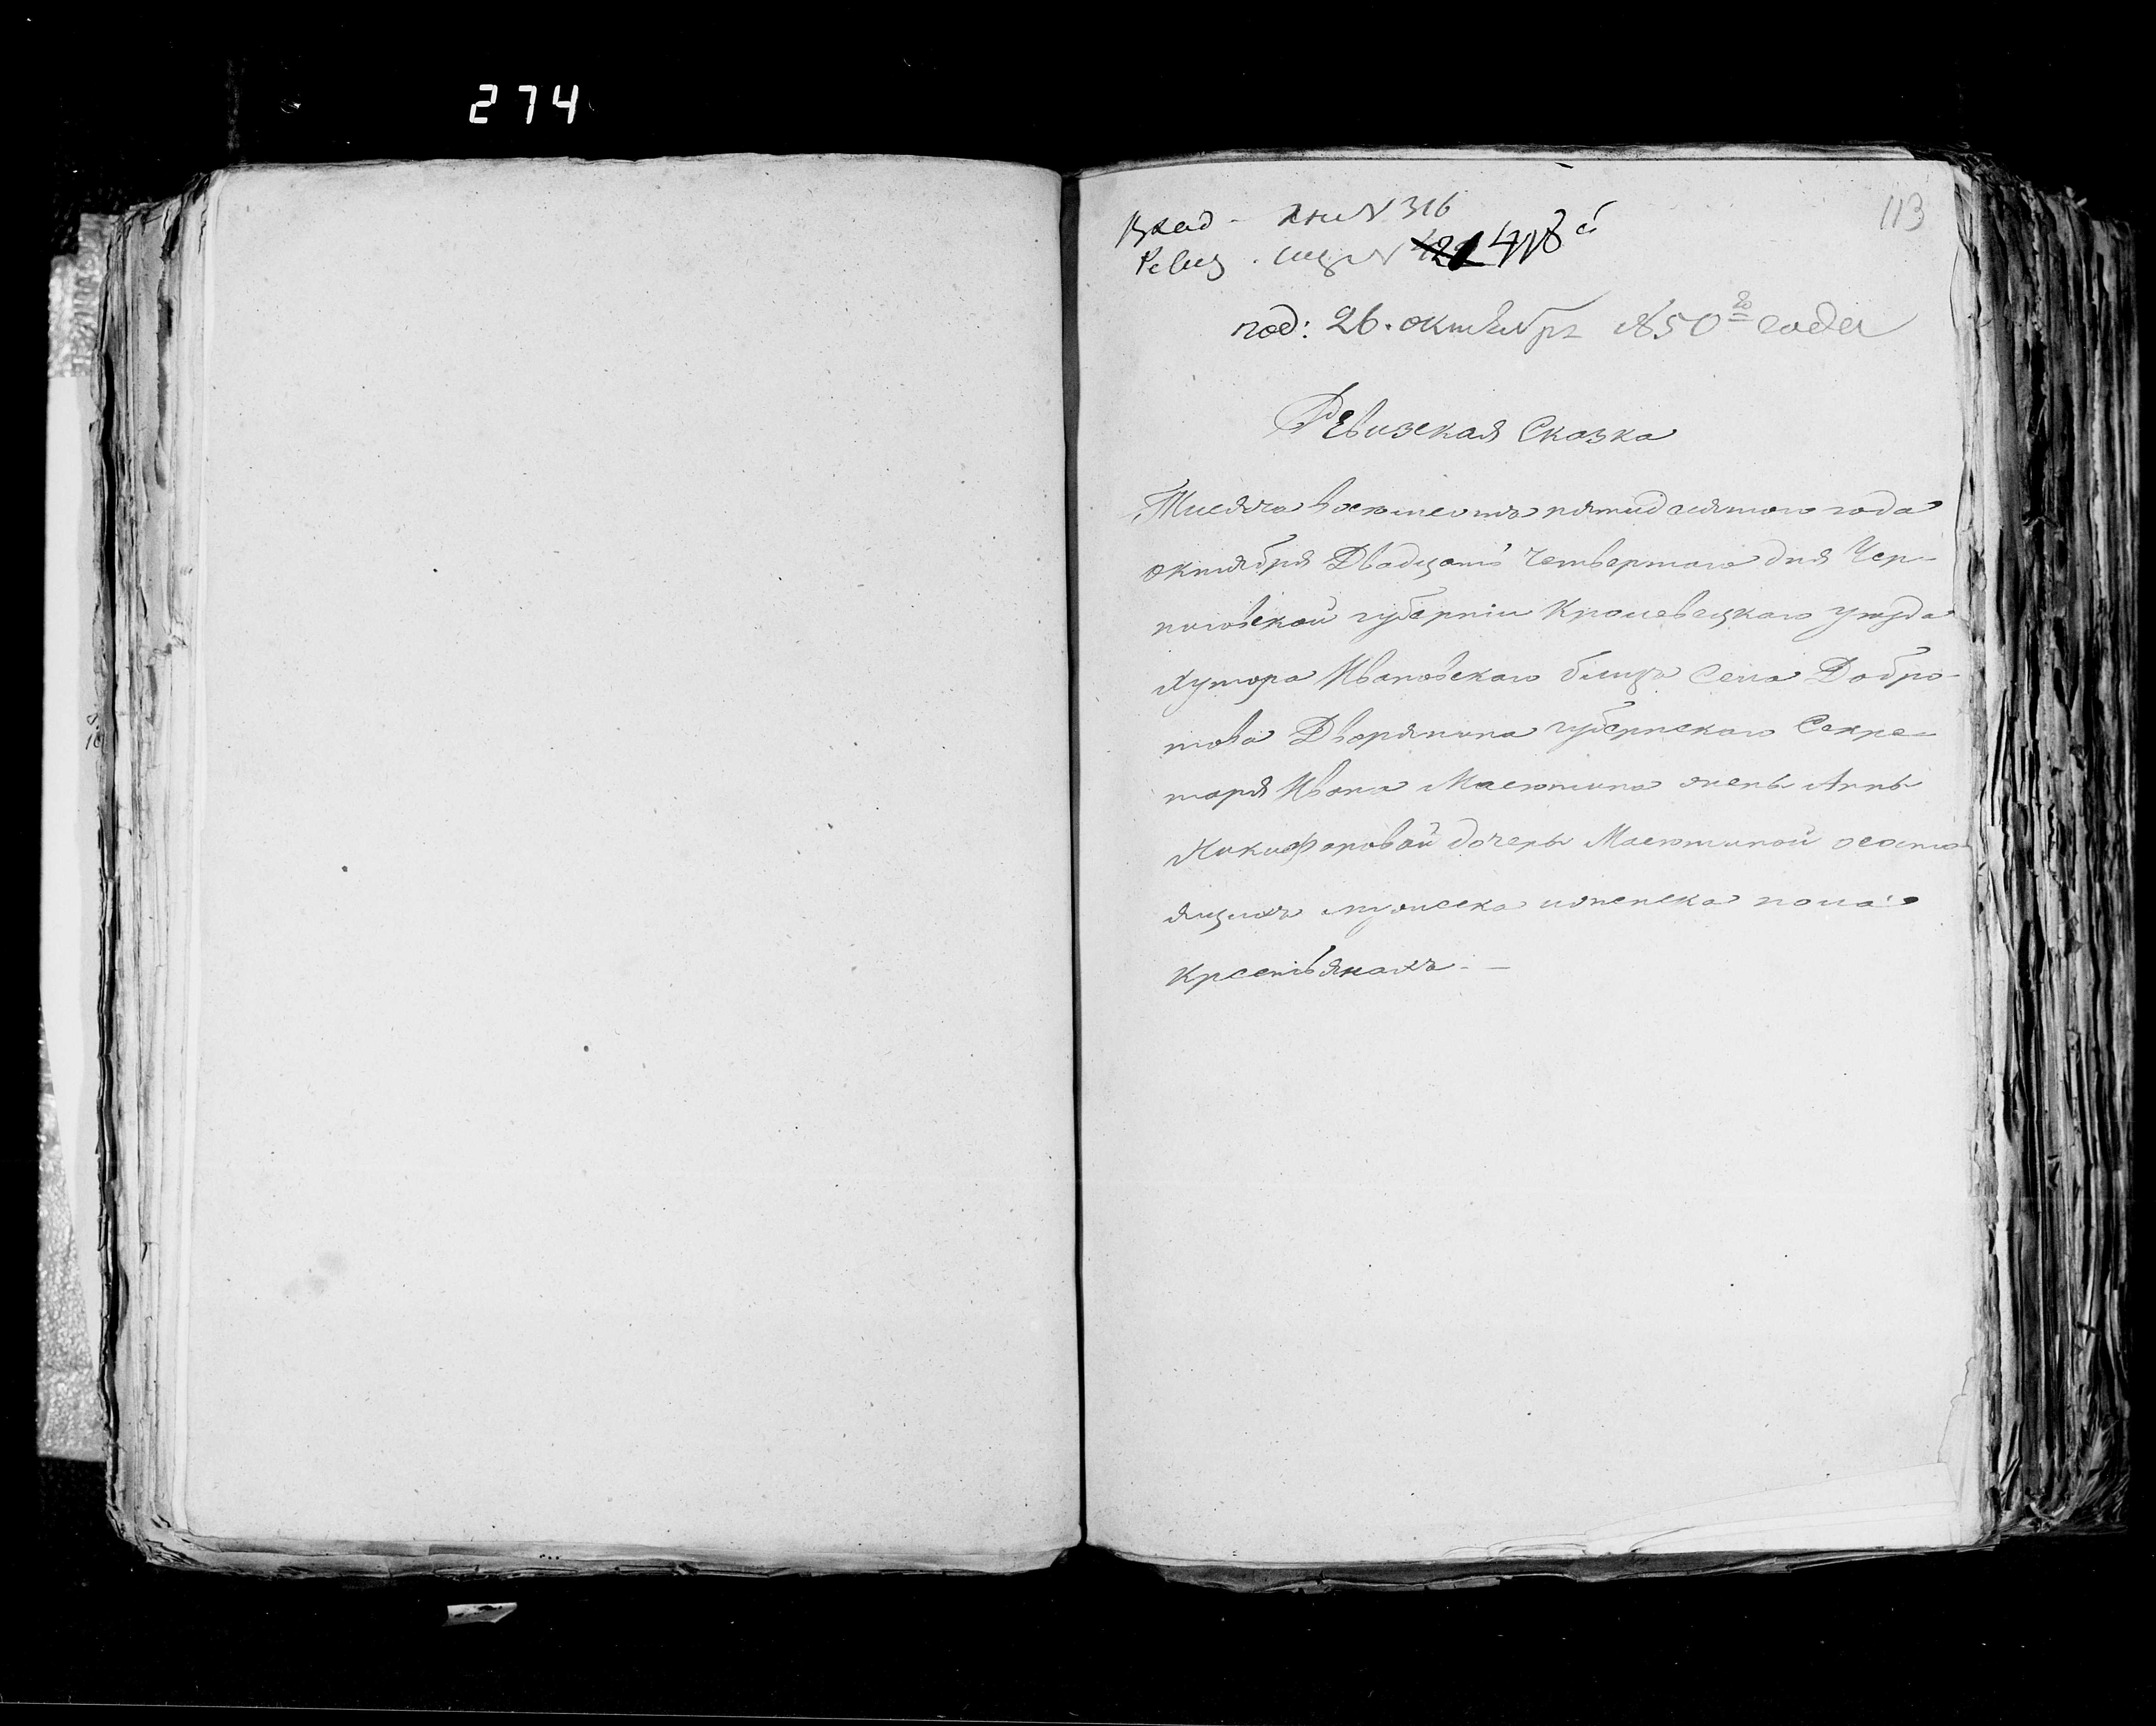 274
113
Вход - кни N 316
Ревиз. спис N 421 418 й
под: 26. октября 1850го года
Ревизская Сказка
Тысяча восемсотъ пятидесятого года
октября Двадцать Четвертаго дня Чер-
ниговской губерніи Кролевецкаго уезда
Хутора Ивановскаго близъ Села Добро-
това Дворянина губернскаго Секре-
таря Ивана Масютина жены Анны
Никифоровой дочеры Масютиной ососто-
ящихъ мужеска иженска пола
Крестьянахъ. -